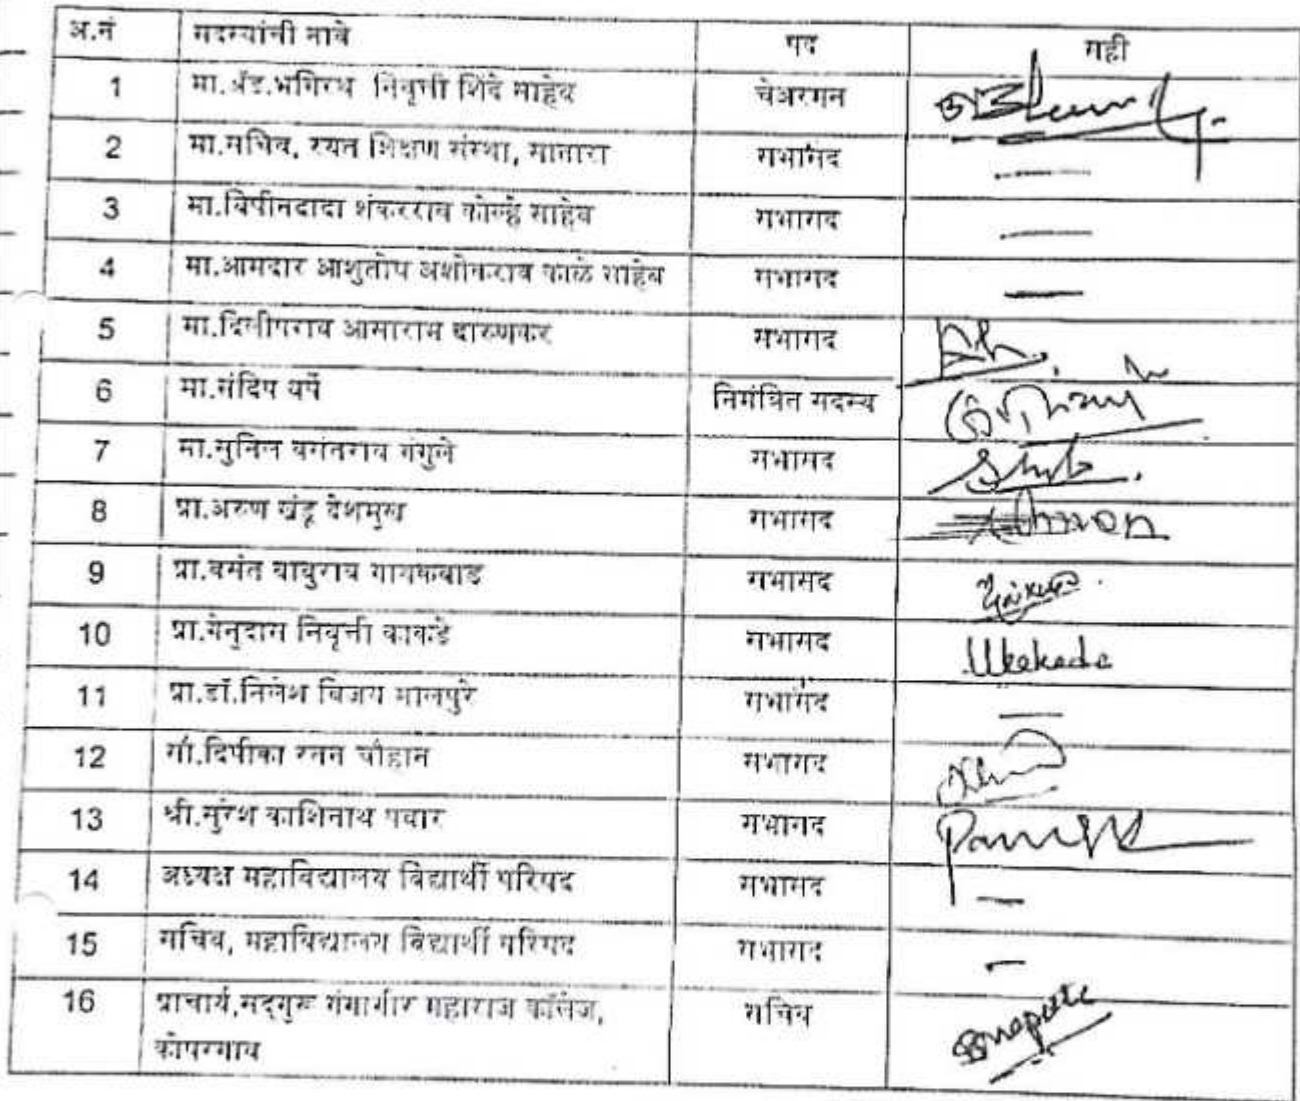 अ.नं सदस्यांची नावे पद सही
1 मा.अॅड.भगिरथ निवृत्ती शिंदे साहेब चेअरमन
2 मा.सचिव, रयत शिक्षण संस्था, सातारा सभासद
3 मा.बिपीनदादा शंकरराव कोल्हे साहेब सभासद
4 मा.आमदार आशुतोष अशोकराव काळे साहेब सभासद
5 मा.दिलीपराव आसाराम दारुणकर सभासद
6 मा.संदिप वर्पे निमंत्रित सदस्य
7 मा.सुनिल वसंतराव गंगुले सभासद
8 प्रा.अरुण खंडू देशमुख सभासद
9 प्रा.वसंत बाबुराव गायकवाड सभासद
10 प्रा.येनुदास निवृत्ती काकडे सभासद Ukakade
11 प्रा.डॉ.निलेश विजय मालपुरे सभासद
12 सौ.दिपीका रतन चौहान सभासद
13 श्री.सुरेश काशिनाथ पवार सभासद
14 अध्यक्ष महाविद्यालय विद्यार्थी परिषद सभासद
15 सचिव, महाविद्यालय विद्यार्थी परिषद सभासद
16 प्राचार्य,सद्गुरू गंगागीर महाराज कॉलेज, सचिव
कोपरगाव